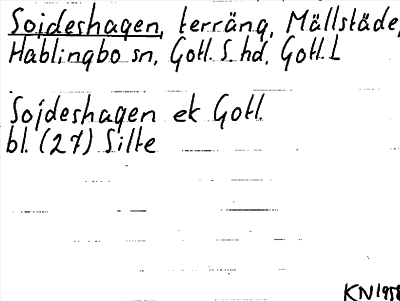 Sojdeshagen, terräng, Mällstäde,
Hablingbo sn, Gotl. S. hd, Gotl. L
Sojdeshagen ek Gotl.
bl. (27) Silte
KN 1958